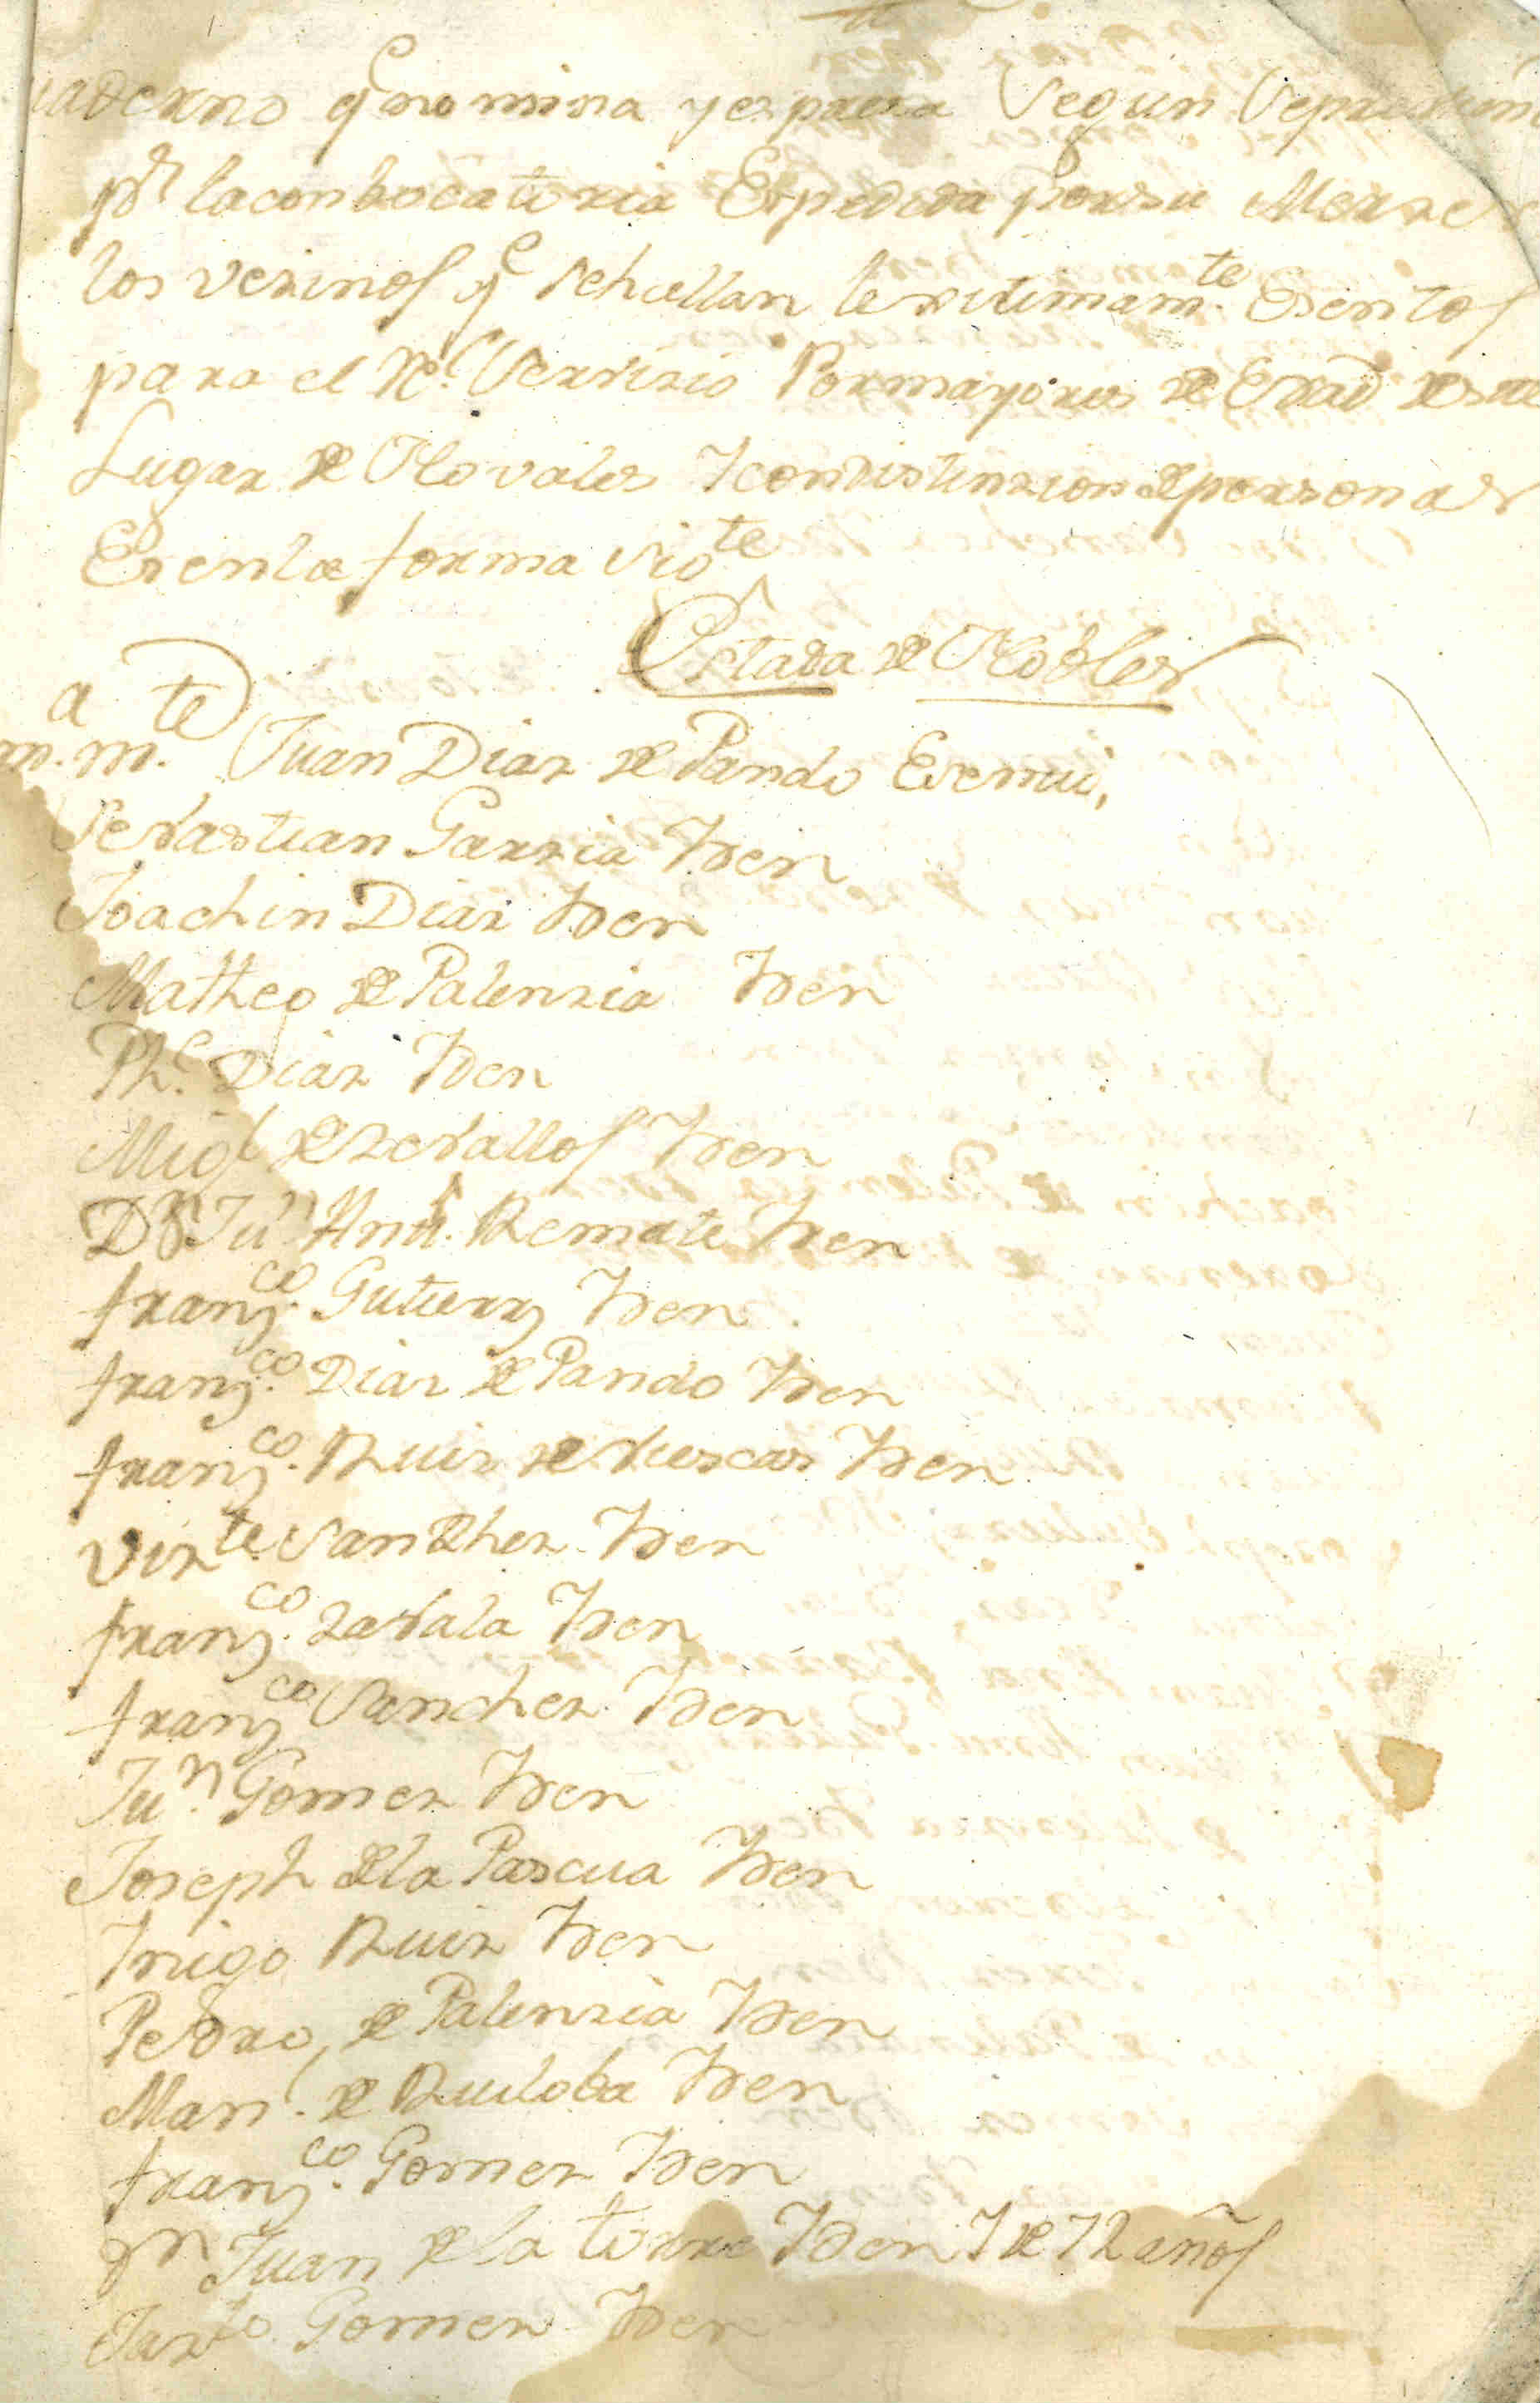 uaderno q̃ nomina y espresa Segun Sepreuiene
pr la conbocatoria Expedida por su Merzed
los vezinos q.e sehallan lexitimam.te Esentos
para el R.l Serbizio Por mayores de Edad deste
Lugar de Nobales Y con distinzion de personas
Es en la forma sig.te
Estado de Nobles
a te
m. m. Juan Diaz de Pando Esemui,
Sebastian Garzia Yden
Joachin Diaz Yden
Matheo de Palenzia Yden
Ph.e Diaz Yden
Mig.l de Zeballos Yden
Dn Ju.n Antt. Remate Yden
franz.co Gutierrz Yden
franz.co Diaz de Pando Yden
franz.co Ruiz de Vuscas Yden
Viz.te Sanchez Yden
franz.co Zabala Yden
franz.co Sanchez Yden
Ju.n Gomez Yden
Joseph de la Pascua Yden
Ynigo Ruiz Yden
Pedro de Palenzia Yden
Man.l de Ruiloba Yden
franz.co Gomez Yden
Dn Juan de la torre Yden Y de 72 años
Gomez Yden